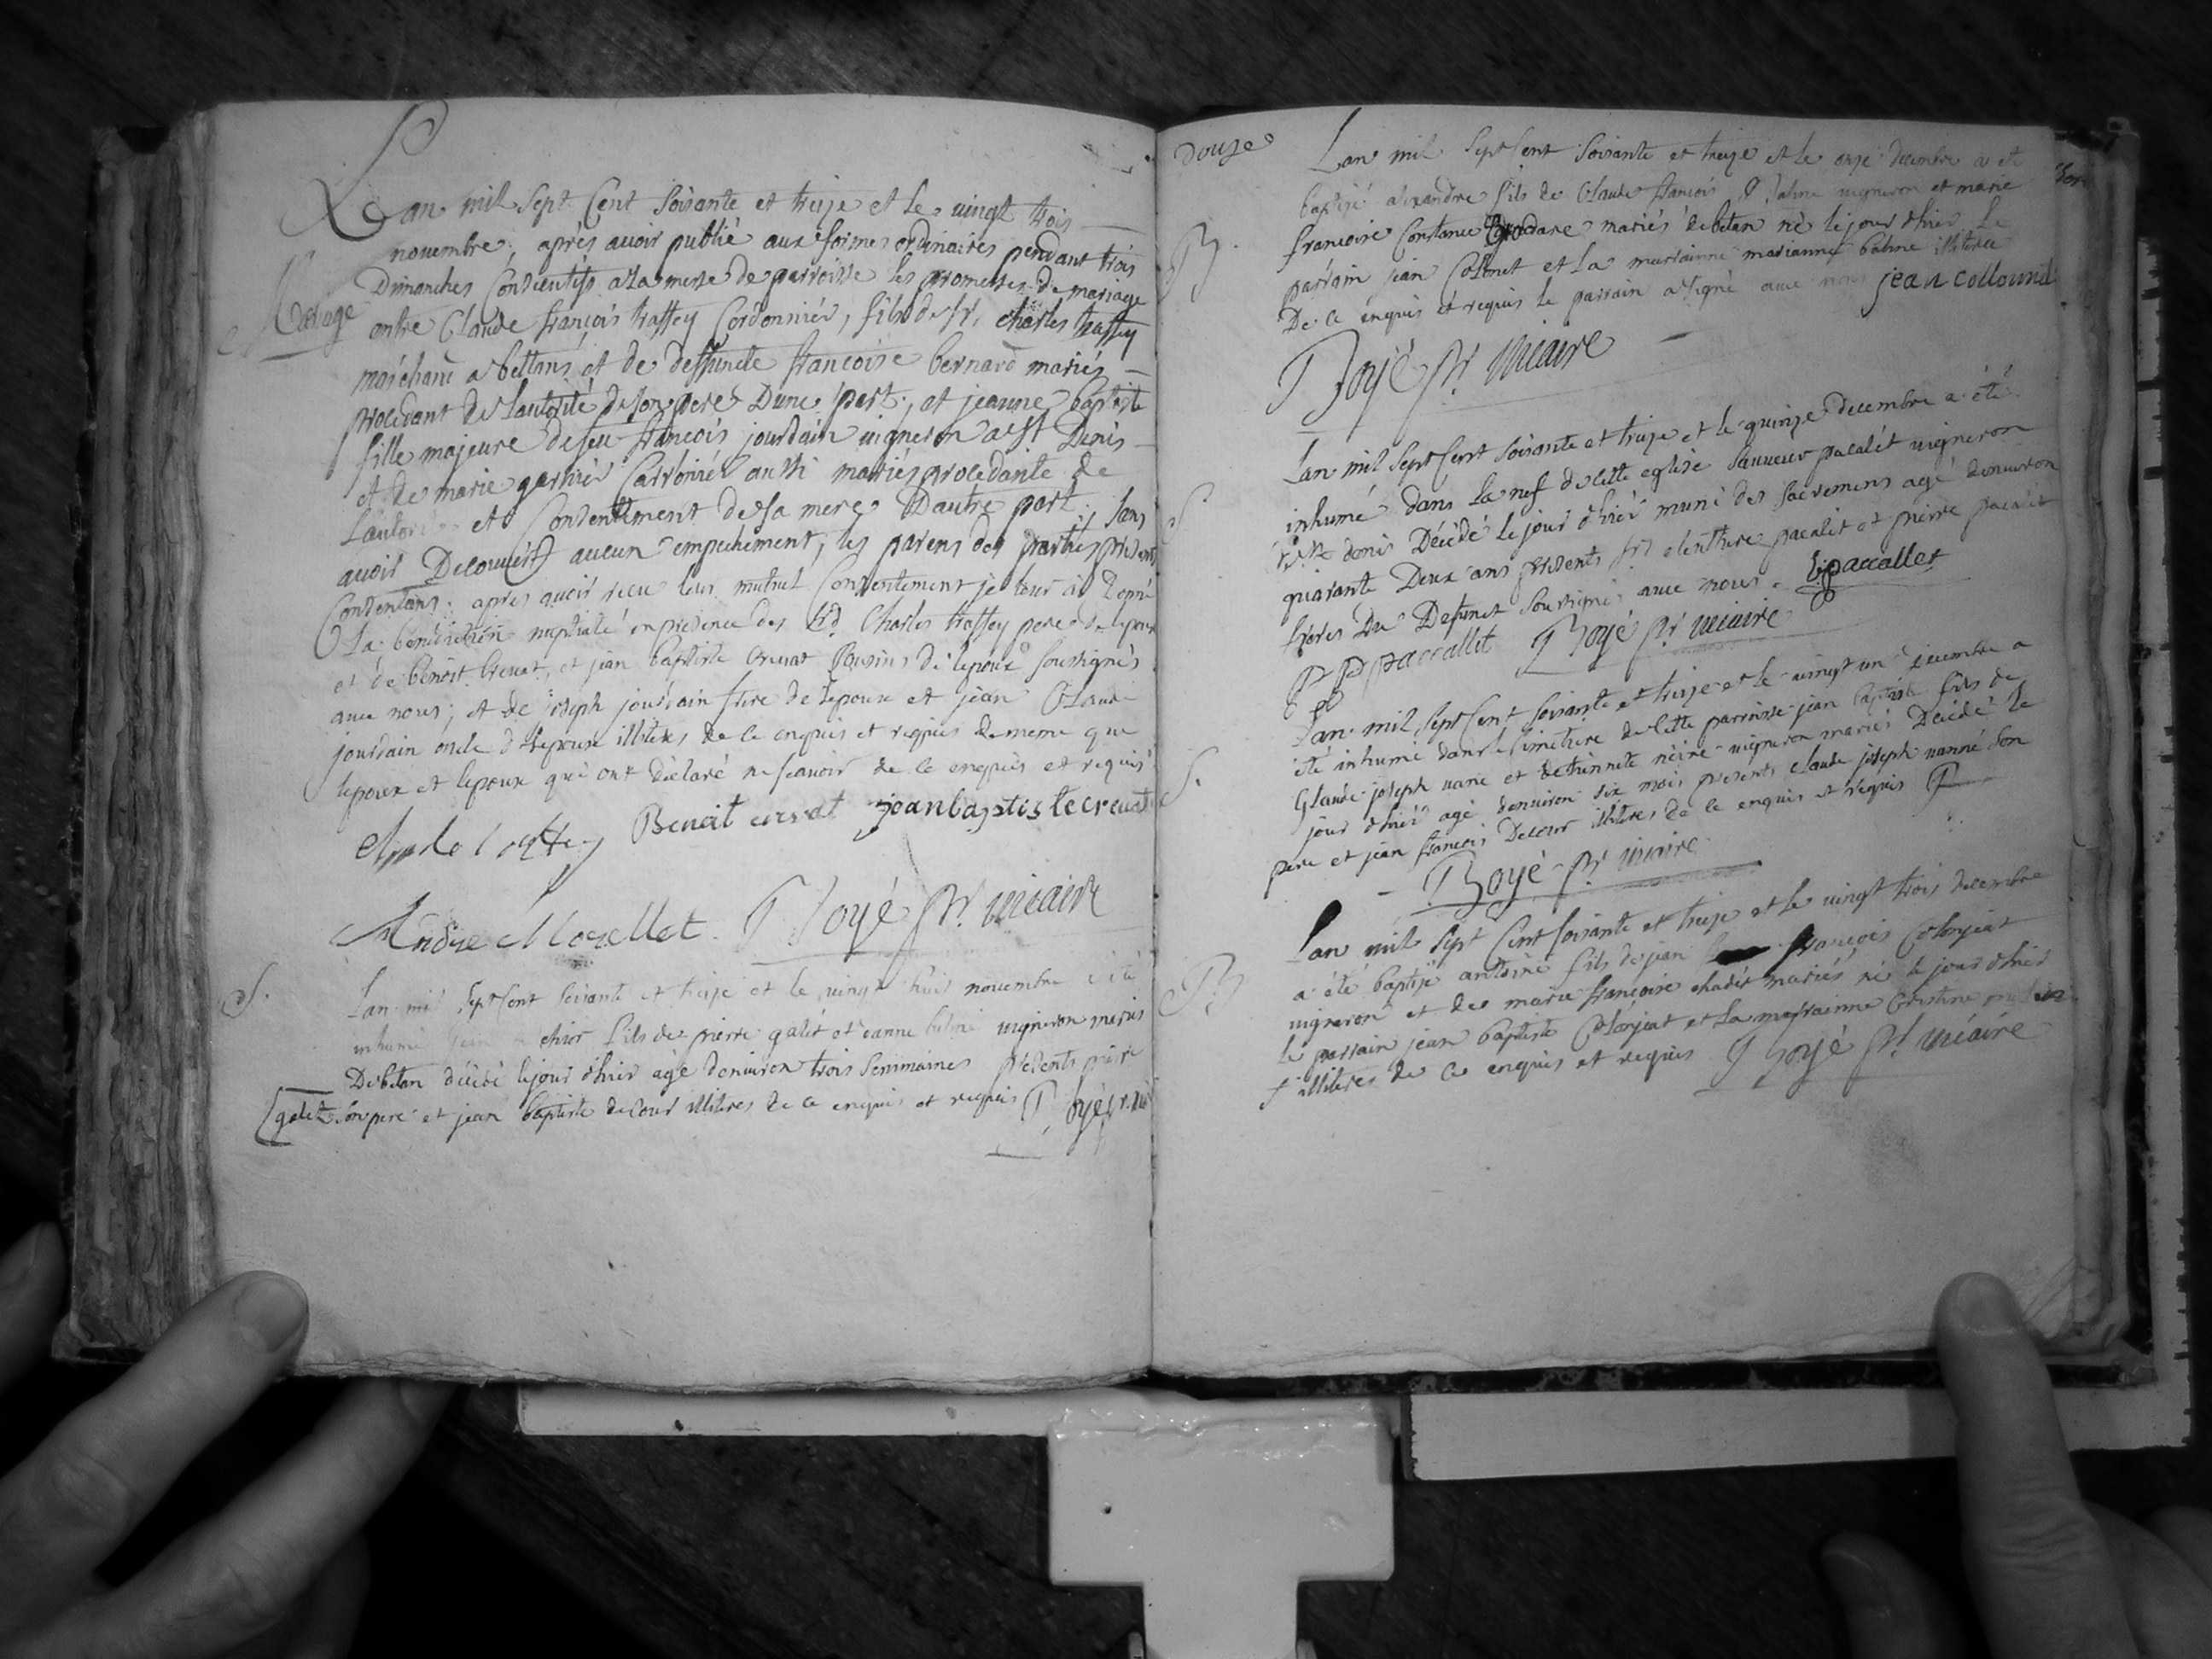 Mariage
Lan mil sept Cent soixante et treize et le vingt trois
novembre, après avoir publié aux formes ordinaires pendant trois
Dimanches Consécutifs a la messe de parroisse les promesses de mariage
entre Claude françois traffey Cordonnier, fils de sr. charles traffey
marchand a bettans, et de deffuncte francoise bernard mariés
procedant de lautorité de son pere Dune part, et jeanne baptiste
fille majeure de feu françois jourdain vigneron a st Denis
et de marie garnier Carbonniel aussi mariés procedante de
lautorité et Consentement de sa mere Dautre part, sans
avoir Decouvert aucun empechement, les parens des parties présents
Consentans, apres avoir reçu leur mutuel Consentement je leur ai Donné
La bénédiction nuptiale en presence des srs. Charles traffey pere de lepoux
et de benoit creuat, et jean baptiste creuat Cousins de lepoux soussignés
avec nous, et de joseph jourdain frere de lepouse et jean Claude
jourdain oncle de lepouse illiteres de ce enquis et requis de meme que
lepoux et lepouse qui ont déclaré ne scavoir de ce enquis et requis
Benoit creuat jean baptiste creuat
Andre Morellet Royé pr. vicaire
S.
Lan mil sept Cent soixante et treize et le vingt huit novembre a été
inhumé fils de pierre galet et vigneron mariés
De betan décédé le jour dhier agé denviron trois semmaines présents pierre
galet son pere et jean baptiste decour illiteres de ce enquis et requis Royé pr. vic
douze
B.
Lan mil sept Cent soixante et treize et le onze decembre a été
baptisé alexandre fils de Claude françois balme vigneron et marie
francoise Constance mariés de betan né le jour dhier Le
parrain jean Collomet et la marrainne marianne balme illiteree
De ce enquis et requis le parrain a signé avec nous jean collound
Royé pr vicaire
S.
Lan mil sept Cent soixante et treize et le quinze decembre a été
inhumé dans la nef de cette eglise sauveur pacalet vigneron
a st. denis Décédé le jour dhier muni des sacremens agé denviron
quarante Deux ans présents srs eleuthere pacalet et pierre pacalet
freres Du Defunct soussignés avec nous. E paccallet
P paccallet Royé pr vicaire
S.
Lan mil sept Cent soixante et treize et le vingt un decembre a
été inhumé dans le Cimetiere de cette parroisse jean baptiste fils de
Claude joseph vanné et vigneron mariés Décédé le
jour dhier agé denviron six mois presents claude joseph vanné son
pere et jean francois Decour illiteres de ce enquis et requis
Royé pr vicaire
B.
Lan mil sept Cent soixante et treize et le vingt trois decembre
a été baptisé antoine fils de jean françois Clorjeat
vigneron et de marie françoise mariés né le jour dhier
le parrain jean baptiste Clorjeat et La marrainne Cristine
illiteres de ce enquis et requis Royé pr vicaire